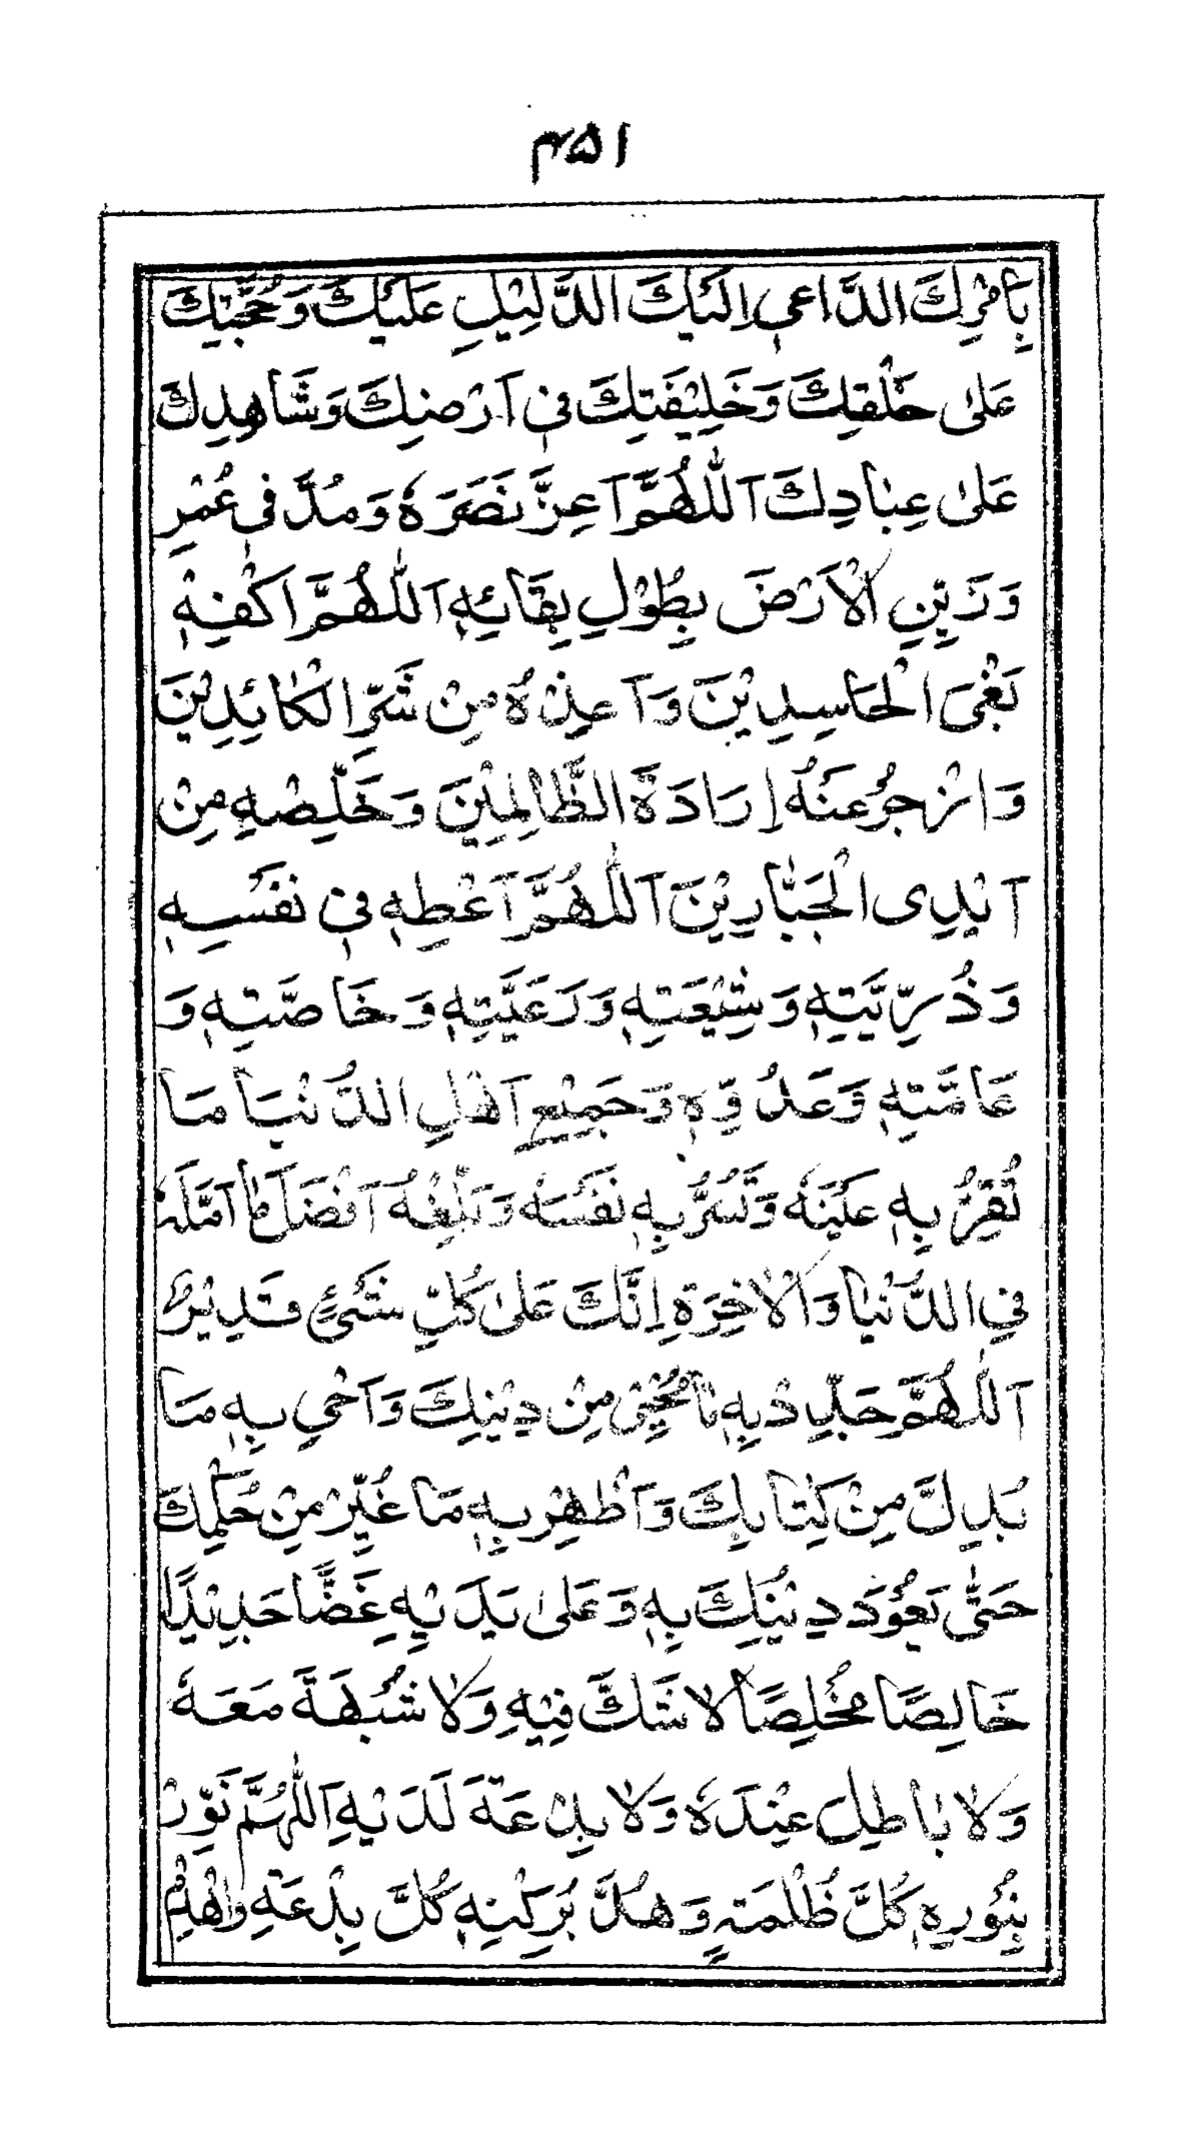 ۴۵۱
بِاَمْرِكَ الدَّاعِيْ اِلَيْكَ الدَّلِيْلِ عَلَيْكَ وَحُجَّتِكَ
عَلىٰ خَلْقِكَ وَخَلِيْفَتِكَ فِيْ اَرْضِكَ وَشَاهِدِكَ
عَلىٰ عِبَادِكَ اَللّٰهُمَّ اَعِزَّ نَصْرَهٗ وَمُدَّ فِيْ عُمْرِ
وَزَيِّنِ الْاَرْضَ بِطُوْلِ بَقَائِهٖ اَللّٰهُمَّ اكْفِهٖ
بَغْىَ الْحَاسِدِيْنَ وَاَعِذْهُ مِنْ شَرِّ الْكَائِدِيْنَ
وَازْجُرْ عَنْهُ اِرَادَةَ الظَّالِمِيْنَ وَخَلِّصْهِ مِنْ
اَيْدِى الْجَبَّارِيْنَ اَللّٰهُمَّ اَعْطِهٖ فِيْ نَفْسِهٖ
وَذُرِّيَّتِهٖ وَشِيْعَتِهٖ وَرَعِيَّتِهٖ وَخَاصَّتِهٖ وَ
عَامَّتِهٖ وَعَدُوِّهٖ وَجَمِيْعِ اَهْلِ الدُّنْيَا مَا
تُقِرُّ بِهٖ عَيْنَهٗ وَتَسُرُّ بِهٖ نَفْسَهٗ وَتَبَلِّغُهُ اَفْضَلَ مَا اَمَّلَهٗ
فِي الدُّنْيَا وَالْاٰخِرَةِ اِنَّكَ عَلىٰ كُلِّ شَيْءٍ قَدِيْرٌ
اَللّٰهُمَّ جَدِّدْ بِهٖ مَا مُحِيَ مِنْ دِيْنِكَ وَاَحْيِ بِهٖ مَا
بُدِلَ مِنْ كِتَابِكَ وَاَظْهِرْ بِهٖ مَا غُيِّرَ مِنْ حُكْمِكَ
حَتّٰى يَعُوْدَ دِيْنُكَ بِهٖ وَعَلىٰ يَدَيْهِ غَضًّا جَدِيْدًا
خَالِصًا مُخْلَصًا لَا شَكَّ فِيْهِ وَلَا شُبْهَةَ مَعَهٗ
وَلَا بَاطِلَ عِنْدَهٗ وَلَا بِدْعَةَ لَدَيْهِ اَللّٰهُمَّ نَوِّرْ
بِنُوْرِهٖ كُلَّ ظُلْمَةٍ وَهُدَّ بِرُكْنِهٖ كُلَّ بِدْعَةٍ وَاهْدِمْ